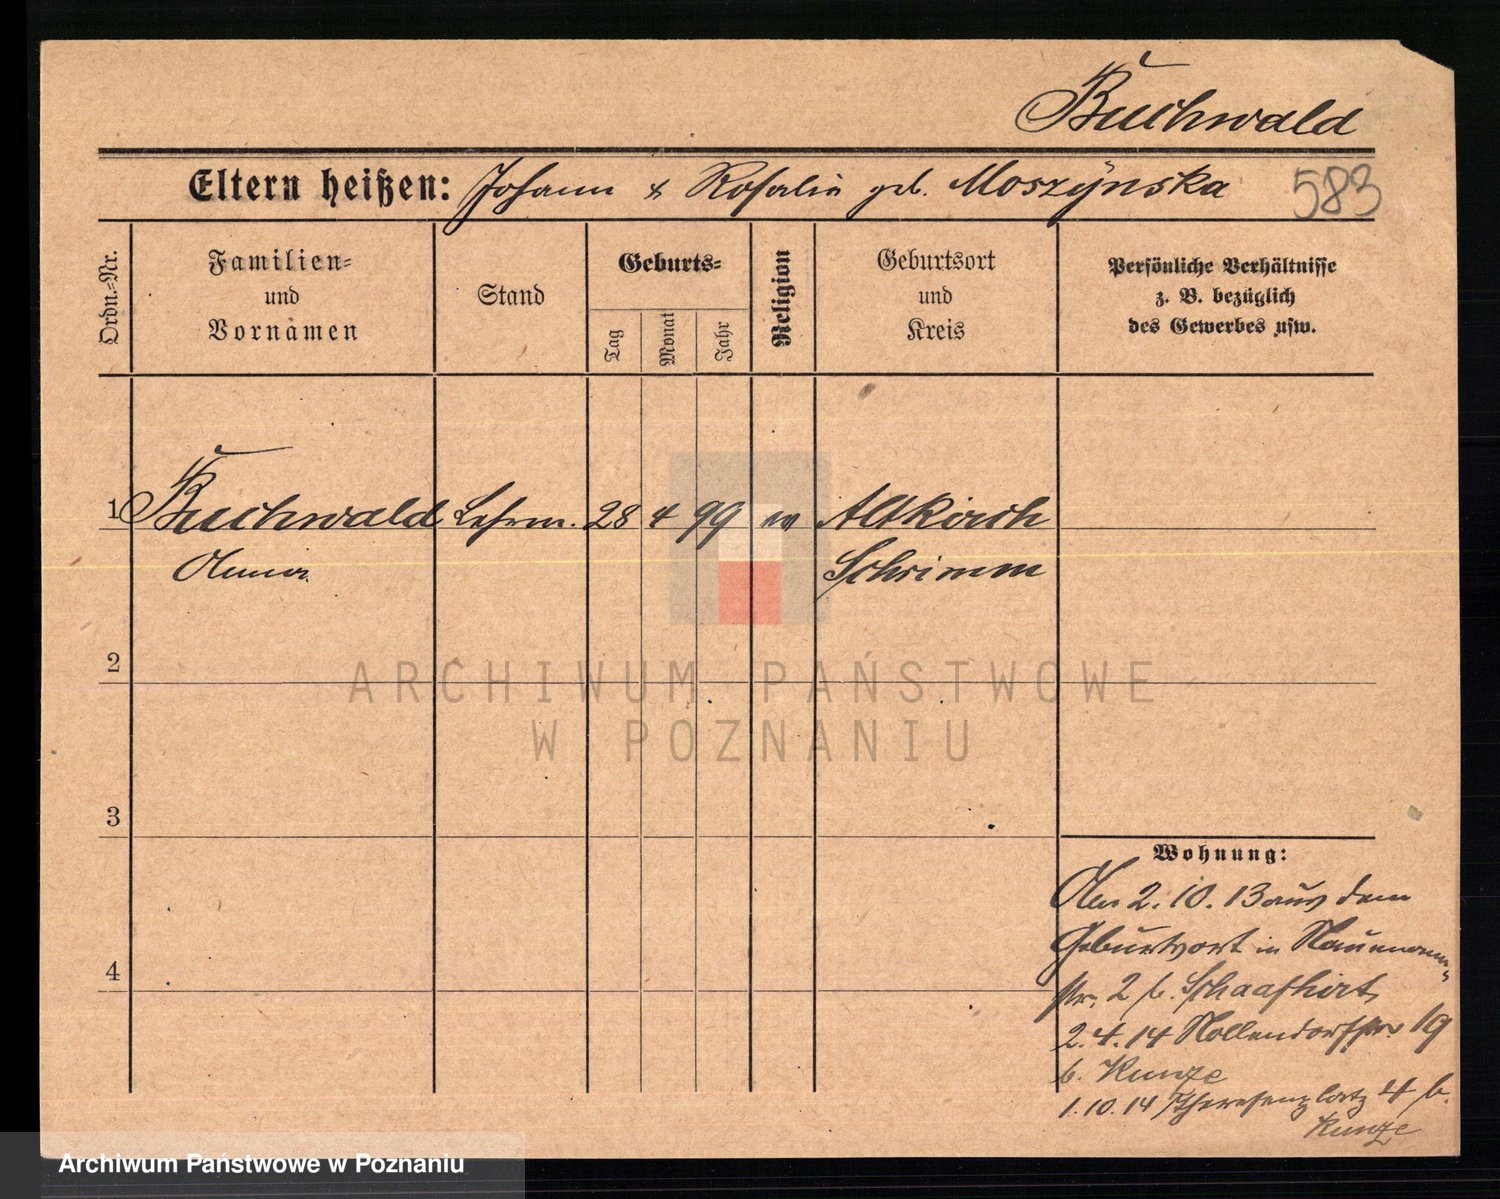 Buchwald
Eltern heißen: Johann & Rosalia geb. Moszynska 583
Ordn.-Nr.
Familien-
und
Vornamen
Stand
Geburts-
Tag
Monat
Jahr
Religion
Geburtsort
und
Kreis
Persönliche Verhältnisse
z. B. bezüglich
des Gewerbes usw.
1 Buchwald 28 4 99 Altkirch
Anna Schrimm
2
3
4
Wohnung:
Am 2.10.13 aus dem
Geburtsort in Naumann-
str. 2 b. Schaafhirt
2.4.14 Nollendorfstr. 19
b. Kunze
1.10.14 Theresenplatz 4 b.
Kunze
ARCHIWUM PAŃSTWOWE
W POZNANIU
Archiwum Państwowe w Poznaniu